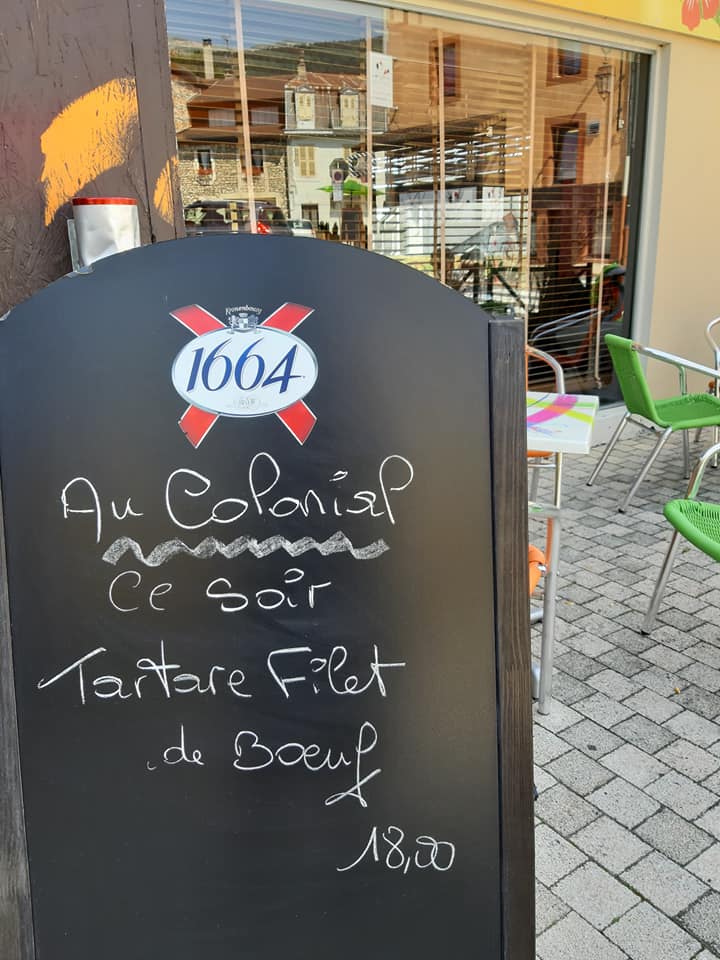 Kronenbourg
1664
Au Colonial
Ce soir
Tartare Filet
de Boeuf
18,00